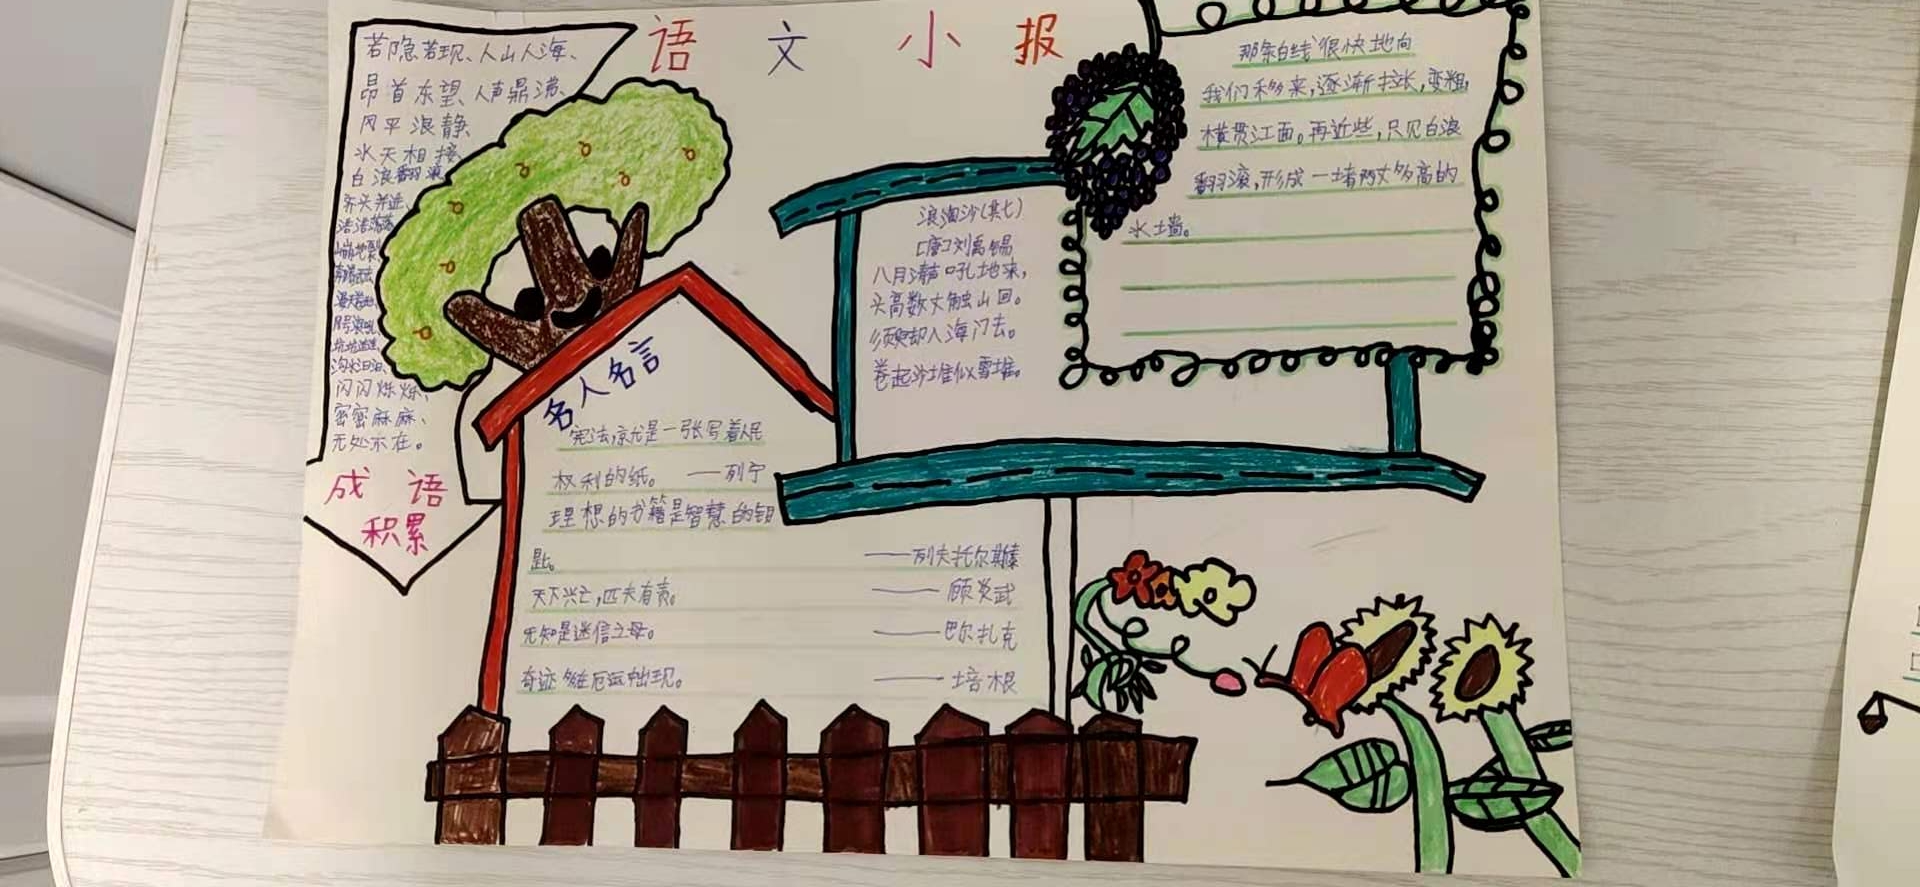 语 文 小 报
若隐若现、人山人海、
昂首东望、人声鼎沸、
风平浪静、
水天相接、
白浪翻滚、
齐头并进、
浩浩荡荡、
山崩地裂、
漫天卷地、
风号浪吼、
闪闪烁烁、
密密麻麻、
无处不在。
成 语
积累
名人名言
宪法,就是一张写着人民
权利的纸。 ——列宁
理想的书籍是智慧的钥
匙。 ——列夫托尔斯泰
天下兴亡,匹夫有责。 ——顾炎武
无知是迷信之母。 ——巴尔扎克
奇迹多在厄运中出现。 ——培根
浪淘沙(其七)
[唐]刘禹锡
八月涛声吼地来,
头高数丈触山回。
须臾却入海门去。
卷起沙堆似雪堆。
那条白线很快地向
我们移来,逐渐拉长,变粗,
横贯江面。再近些,只见白浪
翻滚,形成一堵两丈多高的
水墙。